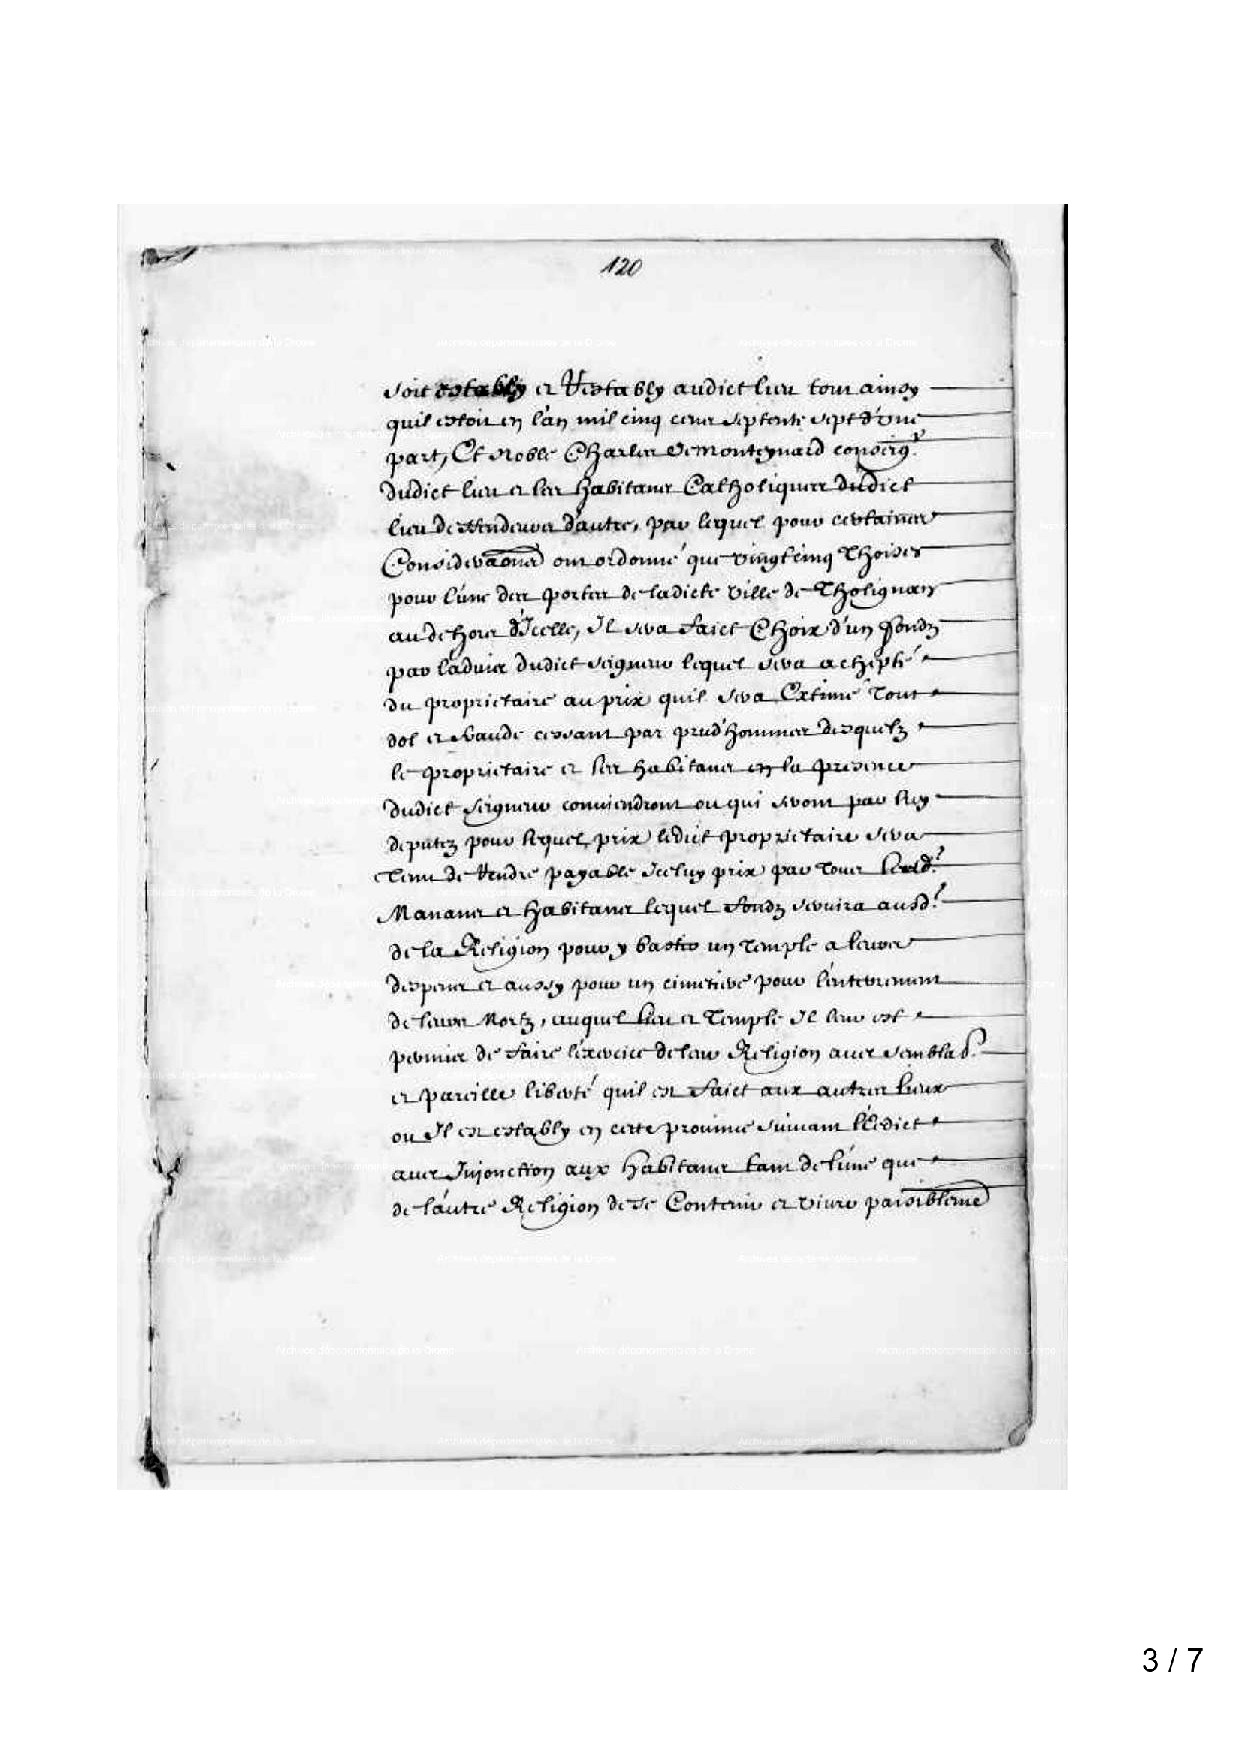 120
soit estably et Restably audict lieu tout ainsy
quil estoit en l'an mil cinq cens septente sept d'une
part, Et Noble Charles de monteynard conseig.r
dudict lieu et les habitans Catholiques dudict
lieu deffendeurs d'autre, par lequel pour certaines
Considerãones ont ordonné que vingt cinq Thoises
pour l'une des portes de ladicte ville de Tholignan
au dehors d'Icelle, Il sera faict Choix d'un fondz
par l'advis dudict seigneur lequel sera achepté
du proprietaire au prix quil sera Extimé Tout
dol et fraude cessant par prud'hommes desquelz
le proprietaire et les habitans en la presence
dudict seigneur conviendront ou qui seront par luy
deputez pour lequel prix ledict proprietaire sera
Tenu de Vendre payable Iceluy prix par Tous lesd.
Manans et habitans lequel fondz servira ausd.
de la Religion pour y bastir un Temple a leurs
despens et aussy pour un cimetiere pour l'enterrement
de leurs Mortz, auquel lieu et Temple Il leur est
permis de faire l'exercice de leur Religion avec semblab.
et pareille liberté quil est faict aux autres lieux
ou Il est estably en ceste province suivant l'Edict
avec Injonction aux habitans tant de l'une que
de l'autre Religion de se Contenir et vivre paisiblemẽ
3 / 7